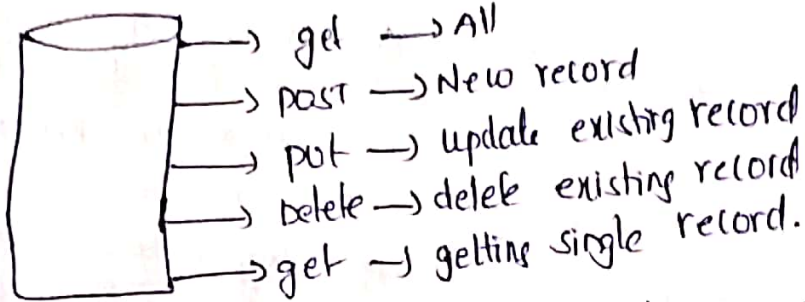 get → All
post → New record
put → update existing record
Delete → delete existing record
get → getting single record.